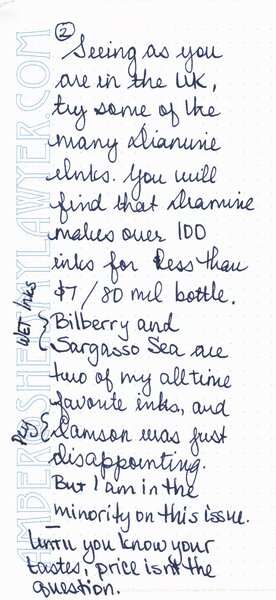 2
Seeing as you
are in the UK,
try some of the
many Diamine
Inks. You will
find that Diamine
makes over 100
inks for less than
$7/80 mil bottle.
WET Inks { Bilberry and
Sargasso Sea are
two of my all time
favorite inks, and
Dry { Damson was just
disappointing.
But I am in the
minority on this issue.
Until you know your
tastes, price isn't the
question.
AMBERGSHERRYLAWYER.COM